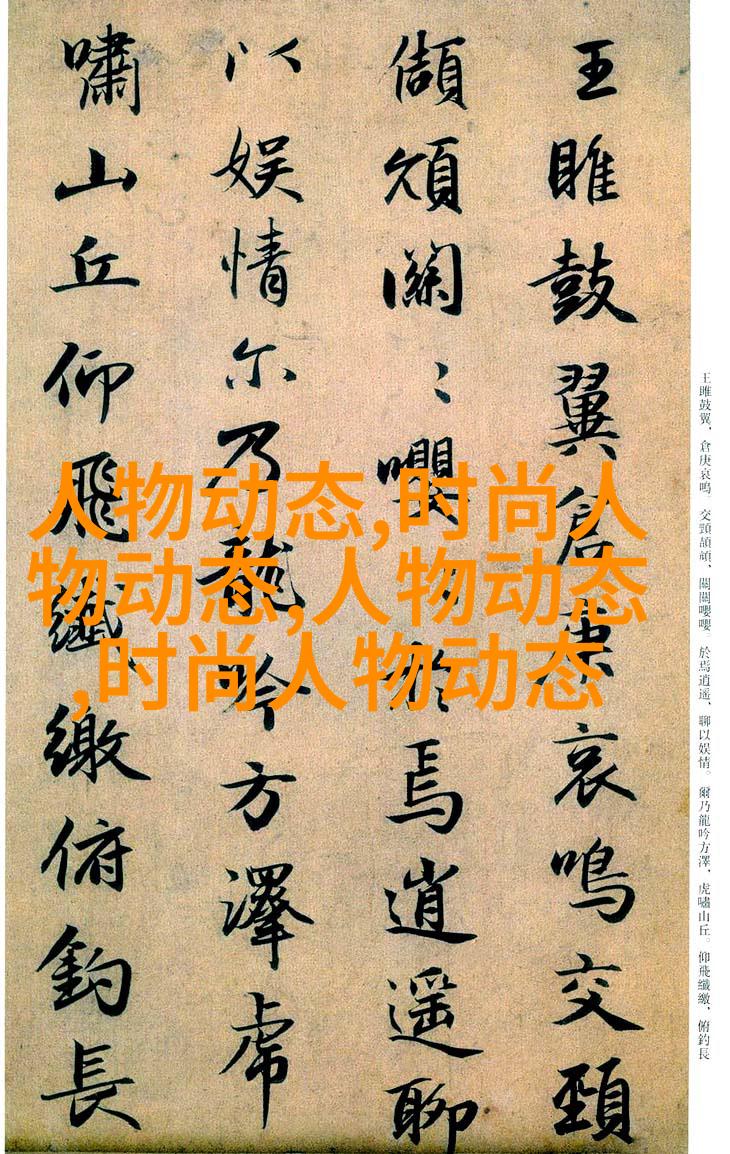 王雎鼓翼倉庚哀鳴交頸
頡頏關〻嚶〻於焉逍遥聊
以娱情尔乃龍吟方澤虎
嘯山丘仰飛纖繳俯釣長
王雎鼓翼，倉庚哀鳴。交頸頡頏，關關嚶嚶。於焉逍遥，聊以娱情。爾乃龍吟方澤，虎嘯山丘。仰飛纖繳，俯釣長
人物动态,时尚人
物动态,人物动态
,时尚人物动态